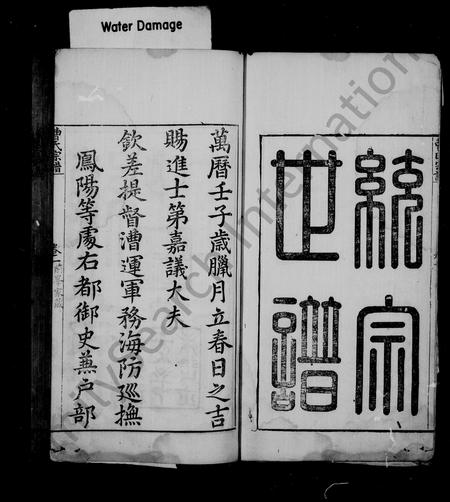 Water Damage
統宗
世譜
萬曆壬子歲臘月立春日之吉
賜進士第嘉議大夫
欽差提督漕運軍務海防廵撫
鳳陽等處右都御史兼户部
曹氏宗譜
卷之一